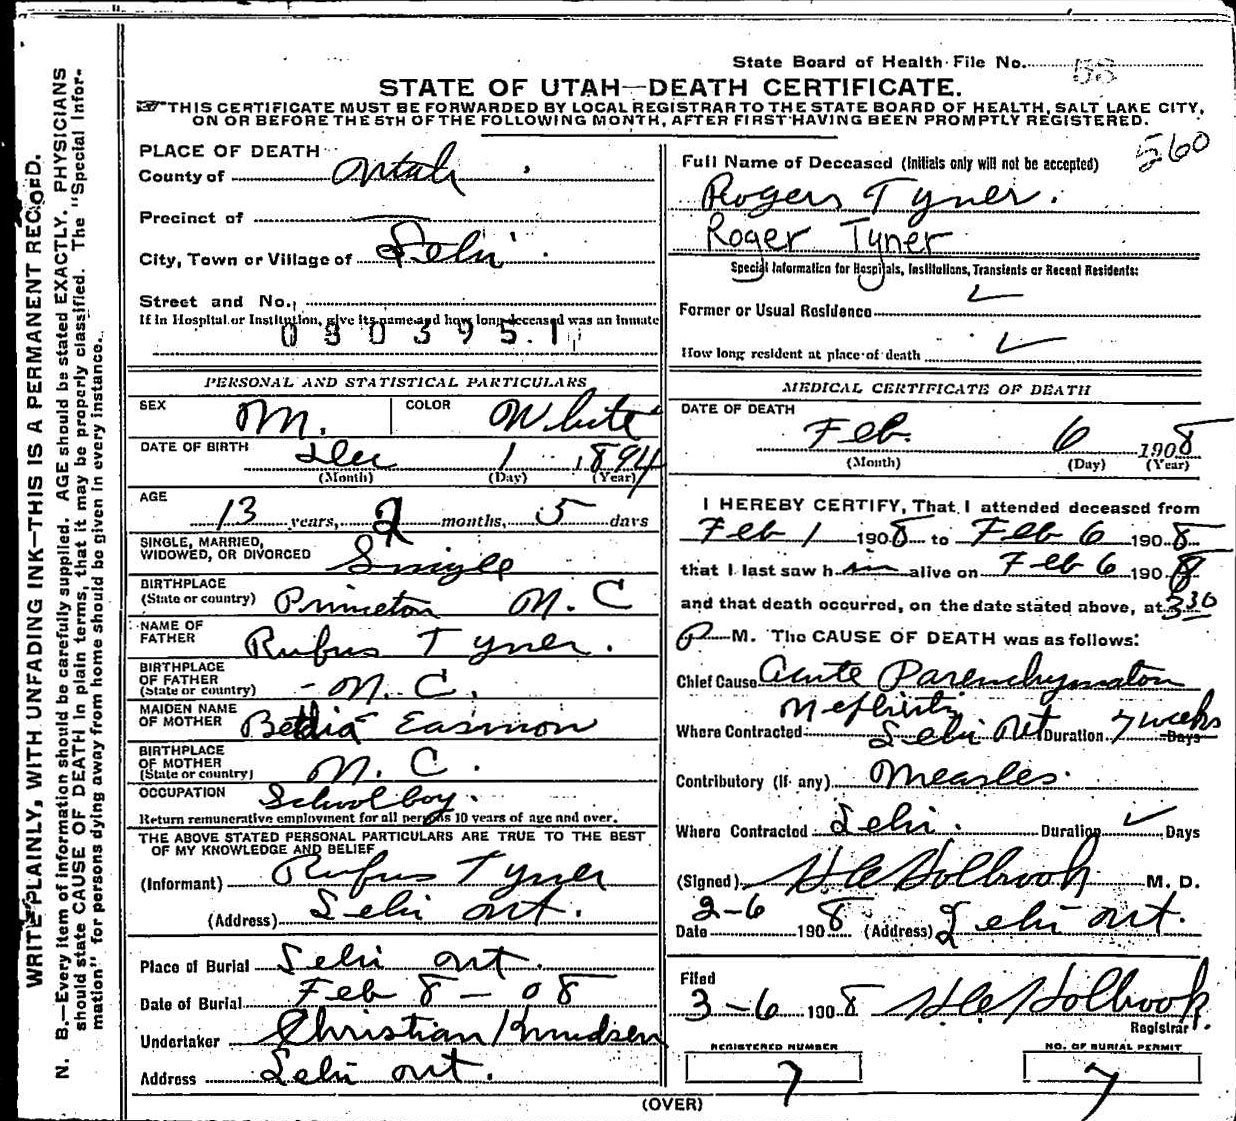 State Board of Health File No. 58
STATE OF UTAH—DEATH CERTIFICATE.
THIS CERTIFICATE MUST BE FORWARDED BY LOCAL REGISTRAR TO THE STATE BOARD OF HEALTH, SALT LAKE CITY,
ON OR BEFORE THE 5TH OF THE FOLLOWING MONTH, AFTER FIRST HAVING BEEN PROMPTLY REGISTERED.
560
WRITE PLAINLY, WITH UNFADING INK—THIS IS A PERMANENT RECORD.
N. B.—Every item of information should be carefully supplied. AGE should be stated EXACTLY. PHYSICIANS
should state CAUSE OF DEATH in plain terms, that it may be properly classified. The "Special Infor-
mation" for persons dying away from home should be given in every instance.
PLACE OF DEATH
County of Utah
Precinct of
City, Town or Village of Lehi
Street and No.
If in Hospital or Institution, give its name and how long deceased was an inmate
0803951
PERSONAL AND STATISTICAL PARTICULARS
SEX M. COLOR White
DATE OF BIRTH Dec 1 1894
(Month) (Day) (Year)
AGE
13 years, 2 months, 5 days
SINGLE, MARRIED,
WIDOWED, OR DIVORCED Single
BIRTHPLACE
(State or country) Princeton N. C
NAME OF
FATHER Rufus Tyner.
BIRTHPLACE
OF FATHER
(State or country) N. C.
MAIDEN NAME
OF MOTHER Easmon
BIRTHPLACE
OF MOTHER
(State or country) N. C.
OCCUPATION Schoolboy.
Return remunerative employment for all persons 10 years of age and over.
THE ABOVE STATED PERSONAL PARTICULARS ARE TRUE TO THE BEST
OF MY KNOWLEDGE AND BELIEF
(Informant) Rufus Tyner
(Address) Lehi Ut.
Place of Burial Lehi Ut.
Date of Burial Feb 8 - 08
Undertaker Christian Knudsen
Address Lehi Ut.
Full Name of Deceased (Initials only will not be accepted)
Rogers Tyner.
Roger Tyner
Special Information for Hospitals, Institutions, Transients or Recent Residents:
Former or Usual Residence
How long resident at place of death
MEDICAL CERTIFICATE OF DEATH
DATE OF DEATH
Feb. 6 1908
(Month) (Day) (Year)
I HEREBY CERTIFY, That I attended deceased from
Feb 1 1908 to Feb 6 1908
that I last saw him alive on Feb 6 1908
and that death occurred, on the date stated above, at 3 30
P M. The CAUSE OF DEATH was as follows:
Chief Cause Acute Parenchymaton
Nephritis
Where Contracted Lehi Ut Duration 7 weeks Days
Contributory (if any) Measles.
Where Contracted Lehi. Duration Days
(Signed) Holbrook M. D.
Date 2-6 1908 (Address) Lehi Ut.
Filed
3-6 1908 Holbrook
Registrar.
REGISTERED NUMBER
7
NO. OF BURIAL PERMIT
7
(OVER)